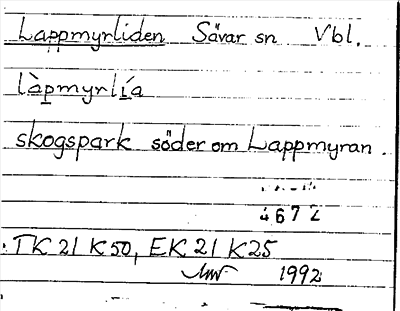 Lappmyrliden Sävar sn Vbl.
làpmyrlía
skogspark söder om Lappmyran.
4672
TK 21 K50, EK 21 K25
1992